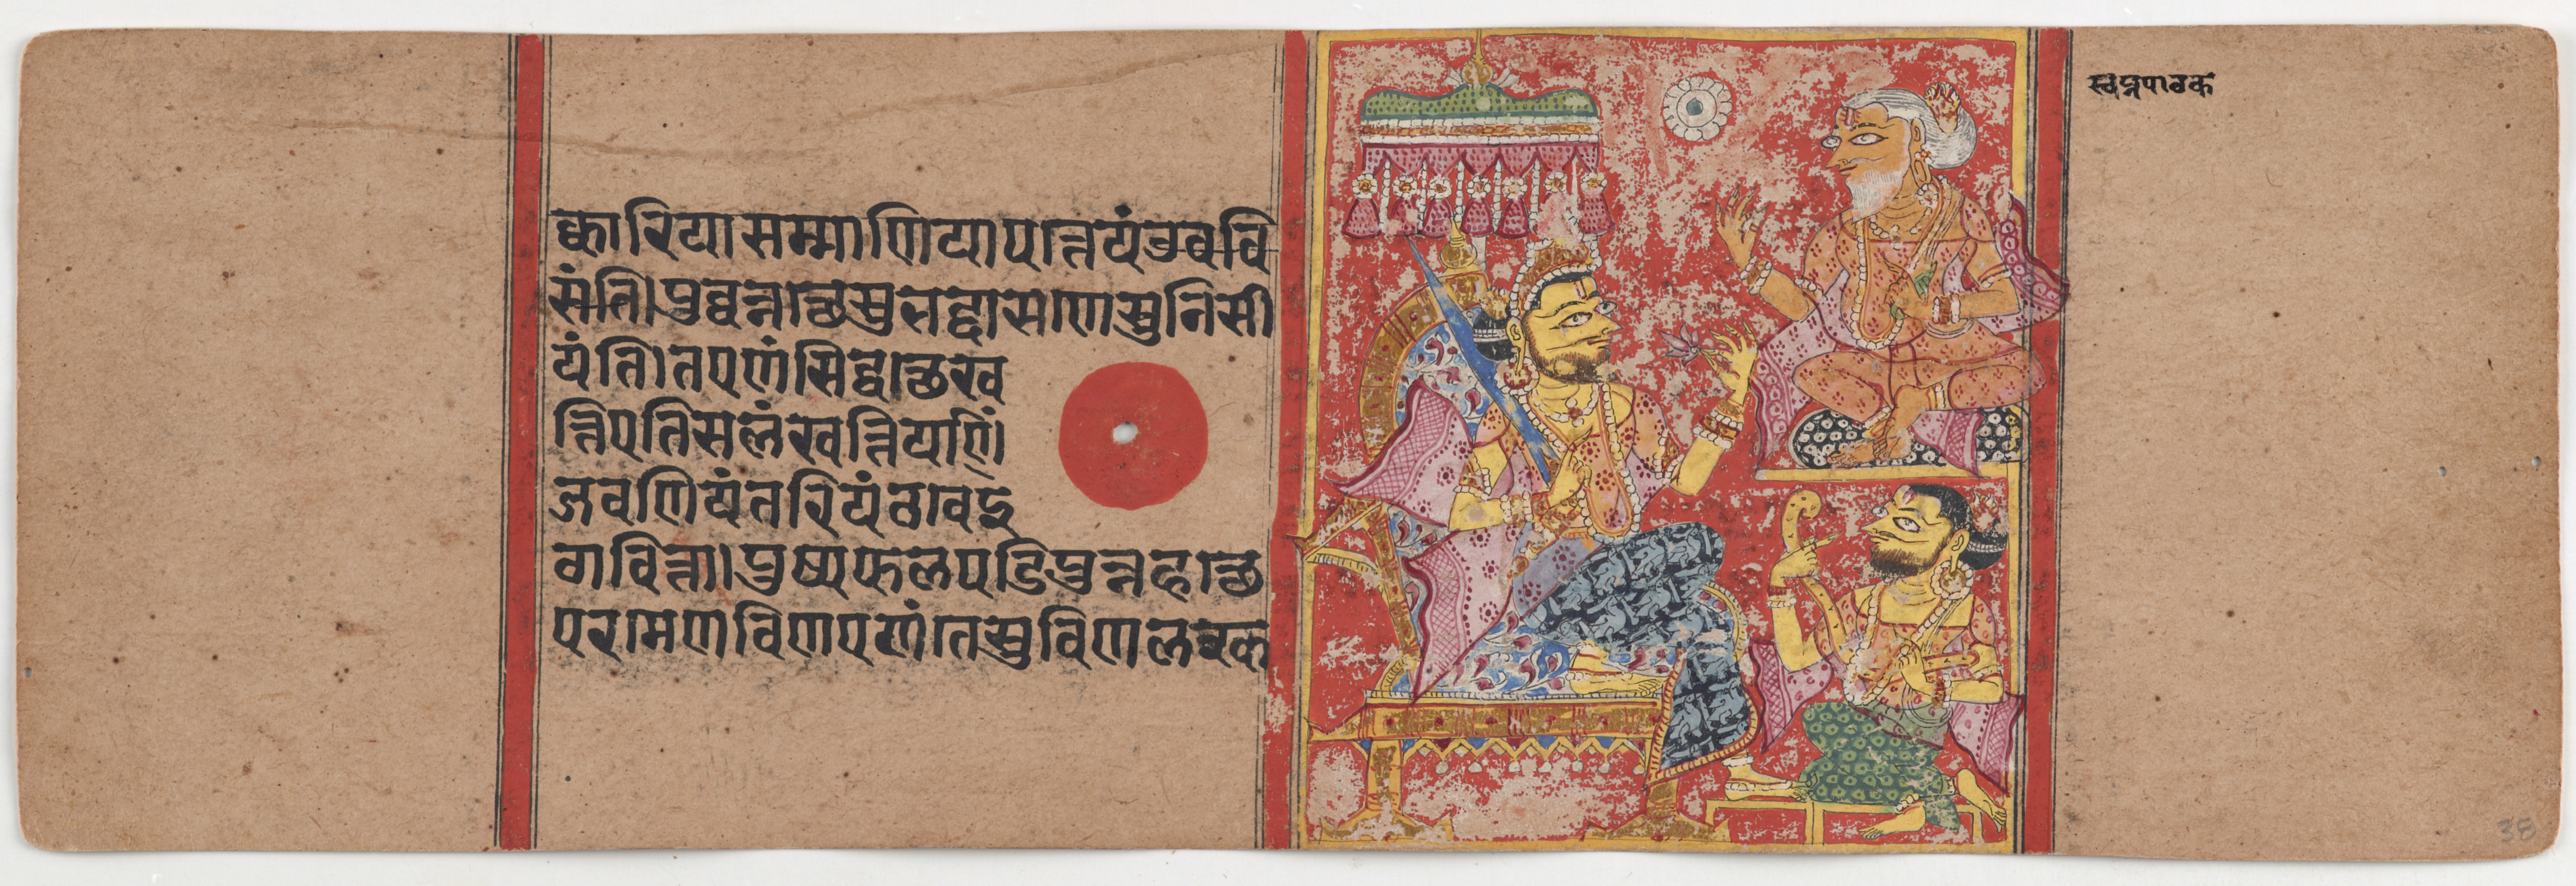 क्कारियासम्माणियापत्तेयंउववि
संति।पुव्वन्नत्थेसुभद्दासणेसुनिसी
यंति।तएणंसिद्धत्थेख
त्तिएतिसलंखत्तियाणिं
जवणियंतरियंठावेइ
ठावित्ता।पुष्पफलपडिपुन्नहत्थे
परमेणविणएणंतेसुविणलक्क
स्वप्नपाठक
38